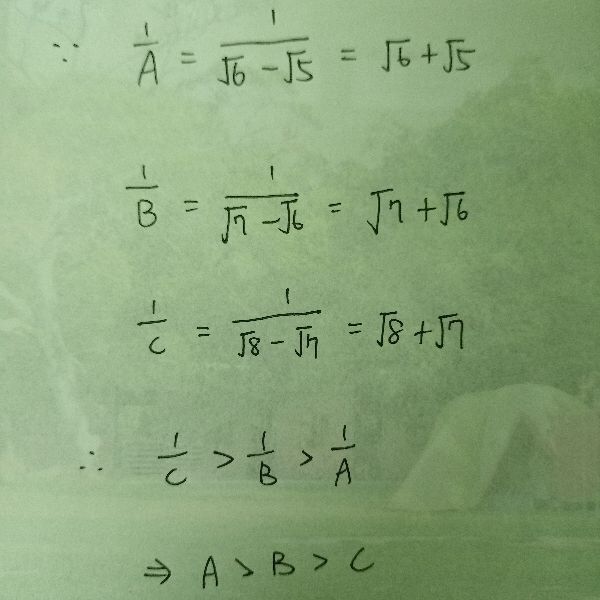 ∵ 1/A = 1/(√6 − √5) = √6 + √5
1/B = 1/(√7 − √6) = √7 + √6
1/C = 1/(√8 − √7) = √8 + √7
∴ 1/C > 1/B > 1/A
⇒ A > B > C